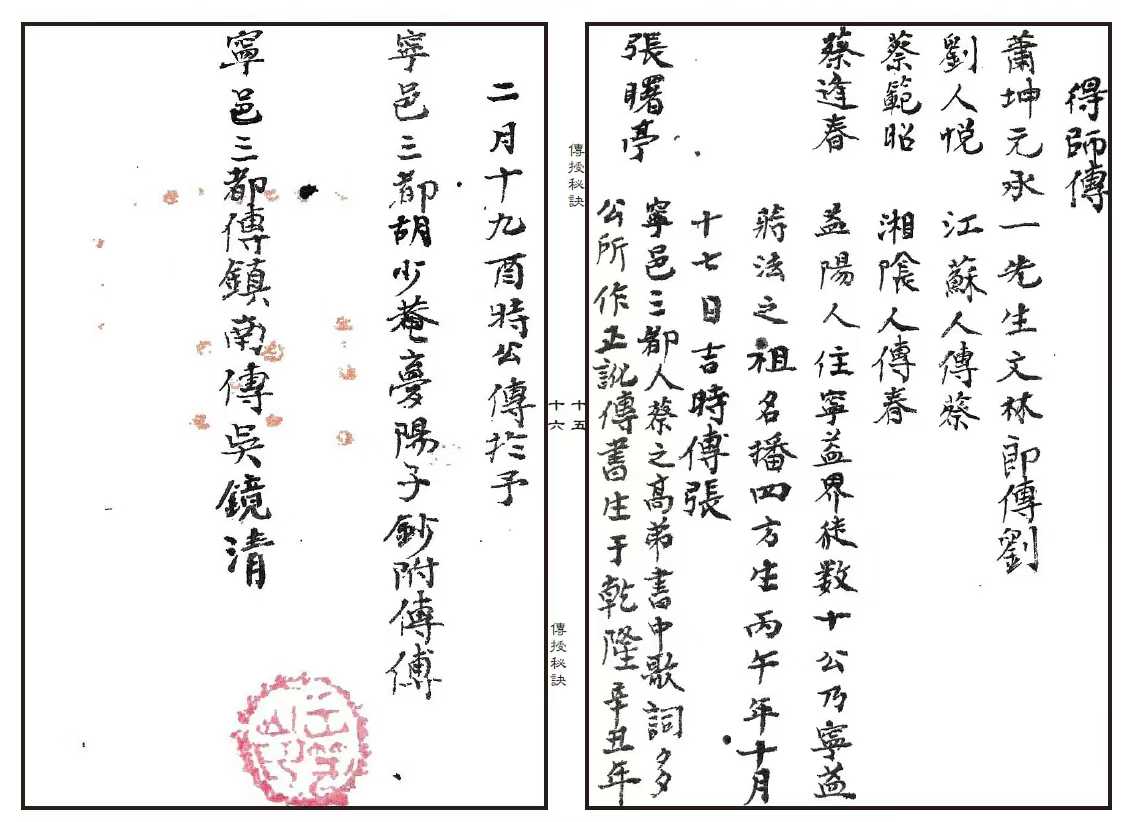 得師傳
蕭坤元永一先生文林郎傳劉
劉人悅 江蘇人傳蔡
蔡範昭 湘陰人傳春
蔡逢春 益陽人住寧益界徒数十公乃寧益
蔣法之祖名播四方生丙午年十月
十七日吉時傳張
張曙亭 寧邑三都人蔡之高弟書中歌詞多
公所作正訛傳書生于乾隆辛丑年
傳授秘訣
十五
十六
傳授秘訣
二月十九酉時公傳於予
寧邑三都胡少菴夢陽子鈔附傳傅
寧邑三都傅鎮南傳吳鏡清